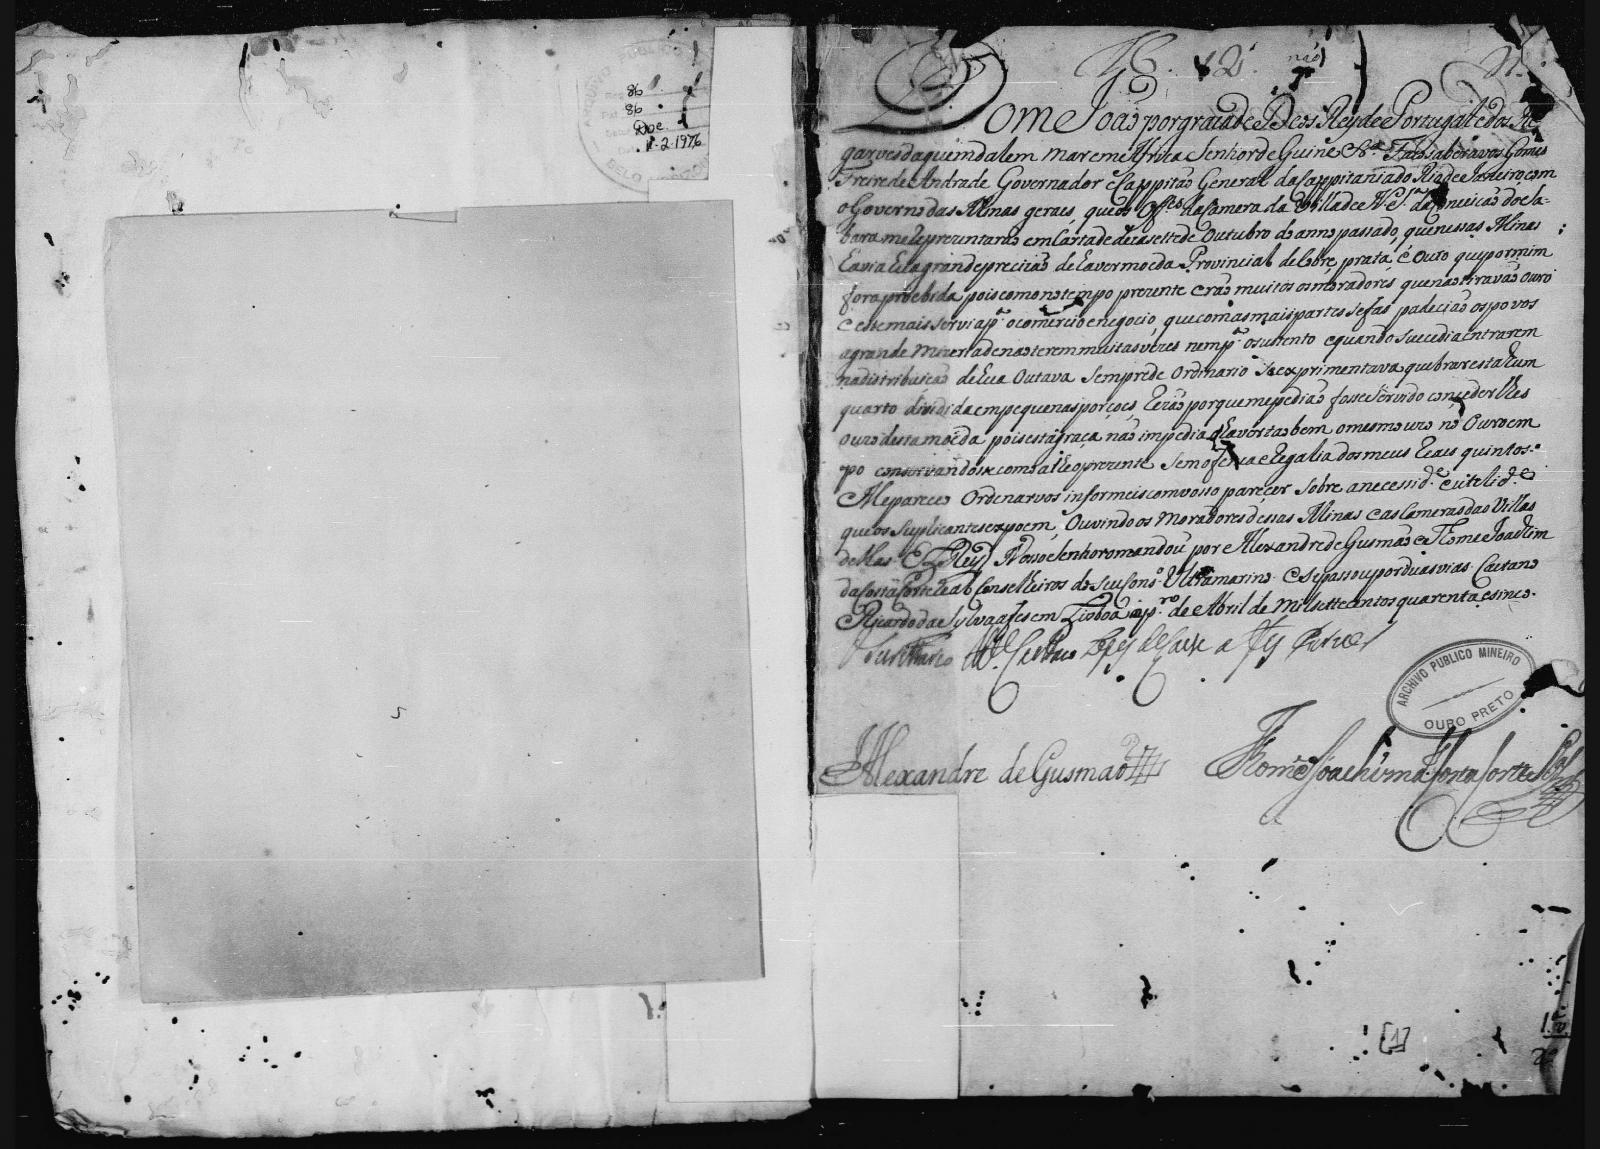 ARQUIVO PUBLICO
86
86
Doc. 1
2.1976
BELO
12
Dom João por graça de Deos Rey de Portugal e dos Al
garves daquem dalem mar em Africa Senhor de Guiné &.ª Faço saber a vos Gomes
Freire de Andrade Governador e Cappitão General da Cappitania do Rio de Janeiro com
o Governo das Minas geraes, que os Off.es da Camera da Villa de N. Sr.ª da Conceicão do Sa-
bara me reprezentarão em Carta de dezasette de Outubro do anno passado, que nessas Minas
havia hua grande precizão de haver moeda Provincial de Cobre, prata, e Ouro que por mim
fora proebida pois como no tempo prezente erão muitos os moradores que não tiravão Ouro
e este mais servia p.ª o comercio e negocio, que com as mais partes se fas, padecião os povos
a grande Mizeria de não terem muitas vezes nem p.ª o sustento e quando sucedia entrarem
na distribuicão de hua Outava sempre de Ordinario se exprimentava quebrar esta hum
quarto dividida em pequenas porçoes. Rezão porque me pedião fosse servido conceder lhes
o uzo desta moeda pois esta graça não impedia haver tãobem o mesmo uzo no Ouro em
po conservandose como athe o prezente sem ofença e Regalia dos meus Reaes quintos.
Me pareceo Ordenarvos informeis com vosso parecer sobre a necessid.e e utelid.e
que os Suplicantes expoem, Ouvindo os Moradores dessas Minas e as Cameras das Villas
dellas. El Rey Nosso Senhor o mandou por Alexandre de Gusmão e Thome Joachim
da Costa Corte Real Conselheiros do seu Cons.º Ultramarino. E se passou por duas vias. Caetano
Ricardo da Sylva a fes em Lixboa a p.ro de Abril de mil settecentos quarenta e sinco.
O secretario M.el Caetano Lopes de Lavre a fes escrever
ARCHIVO PUBLICO MINEIRO
OURO PRETO
Alexandre de Gusmaõ
Thome Joachim da Costa Corte Real
[1]
1.ª v.